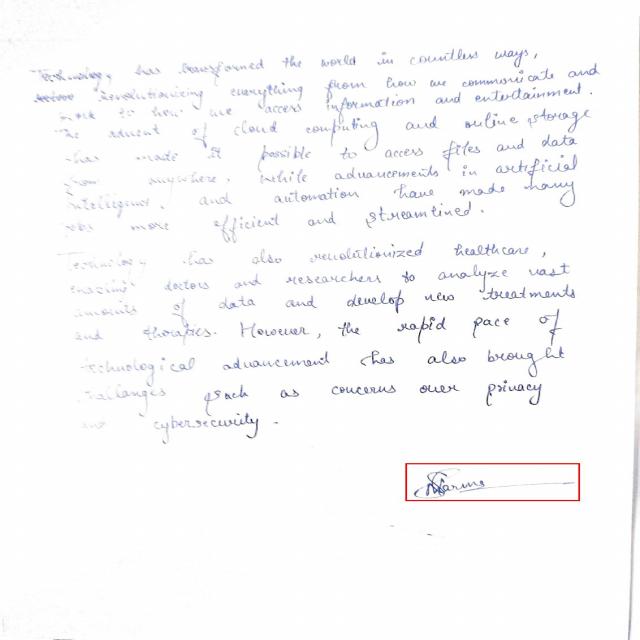 Technology has transformed the world in countless ways,
revolutionizing everything from how we communicate and
work to how we access information and entertainment.
The advent of cloud computing and online storage
has made it possible to access files and data
from anywhere. While advancements in artificial
intelligence, and automation have made many
jobs more efficient and streamlined.
Technology has also revolutionized healthcare,
enabling doctors and researchers to analyze vast
amounts of data and develop new treatments
and therapies. However, the rapid pace of
technological advancement has also brought
challanges such as concerns over privacy
and cybersecurity.